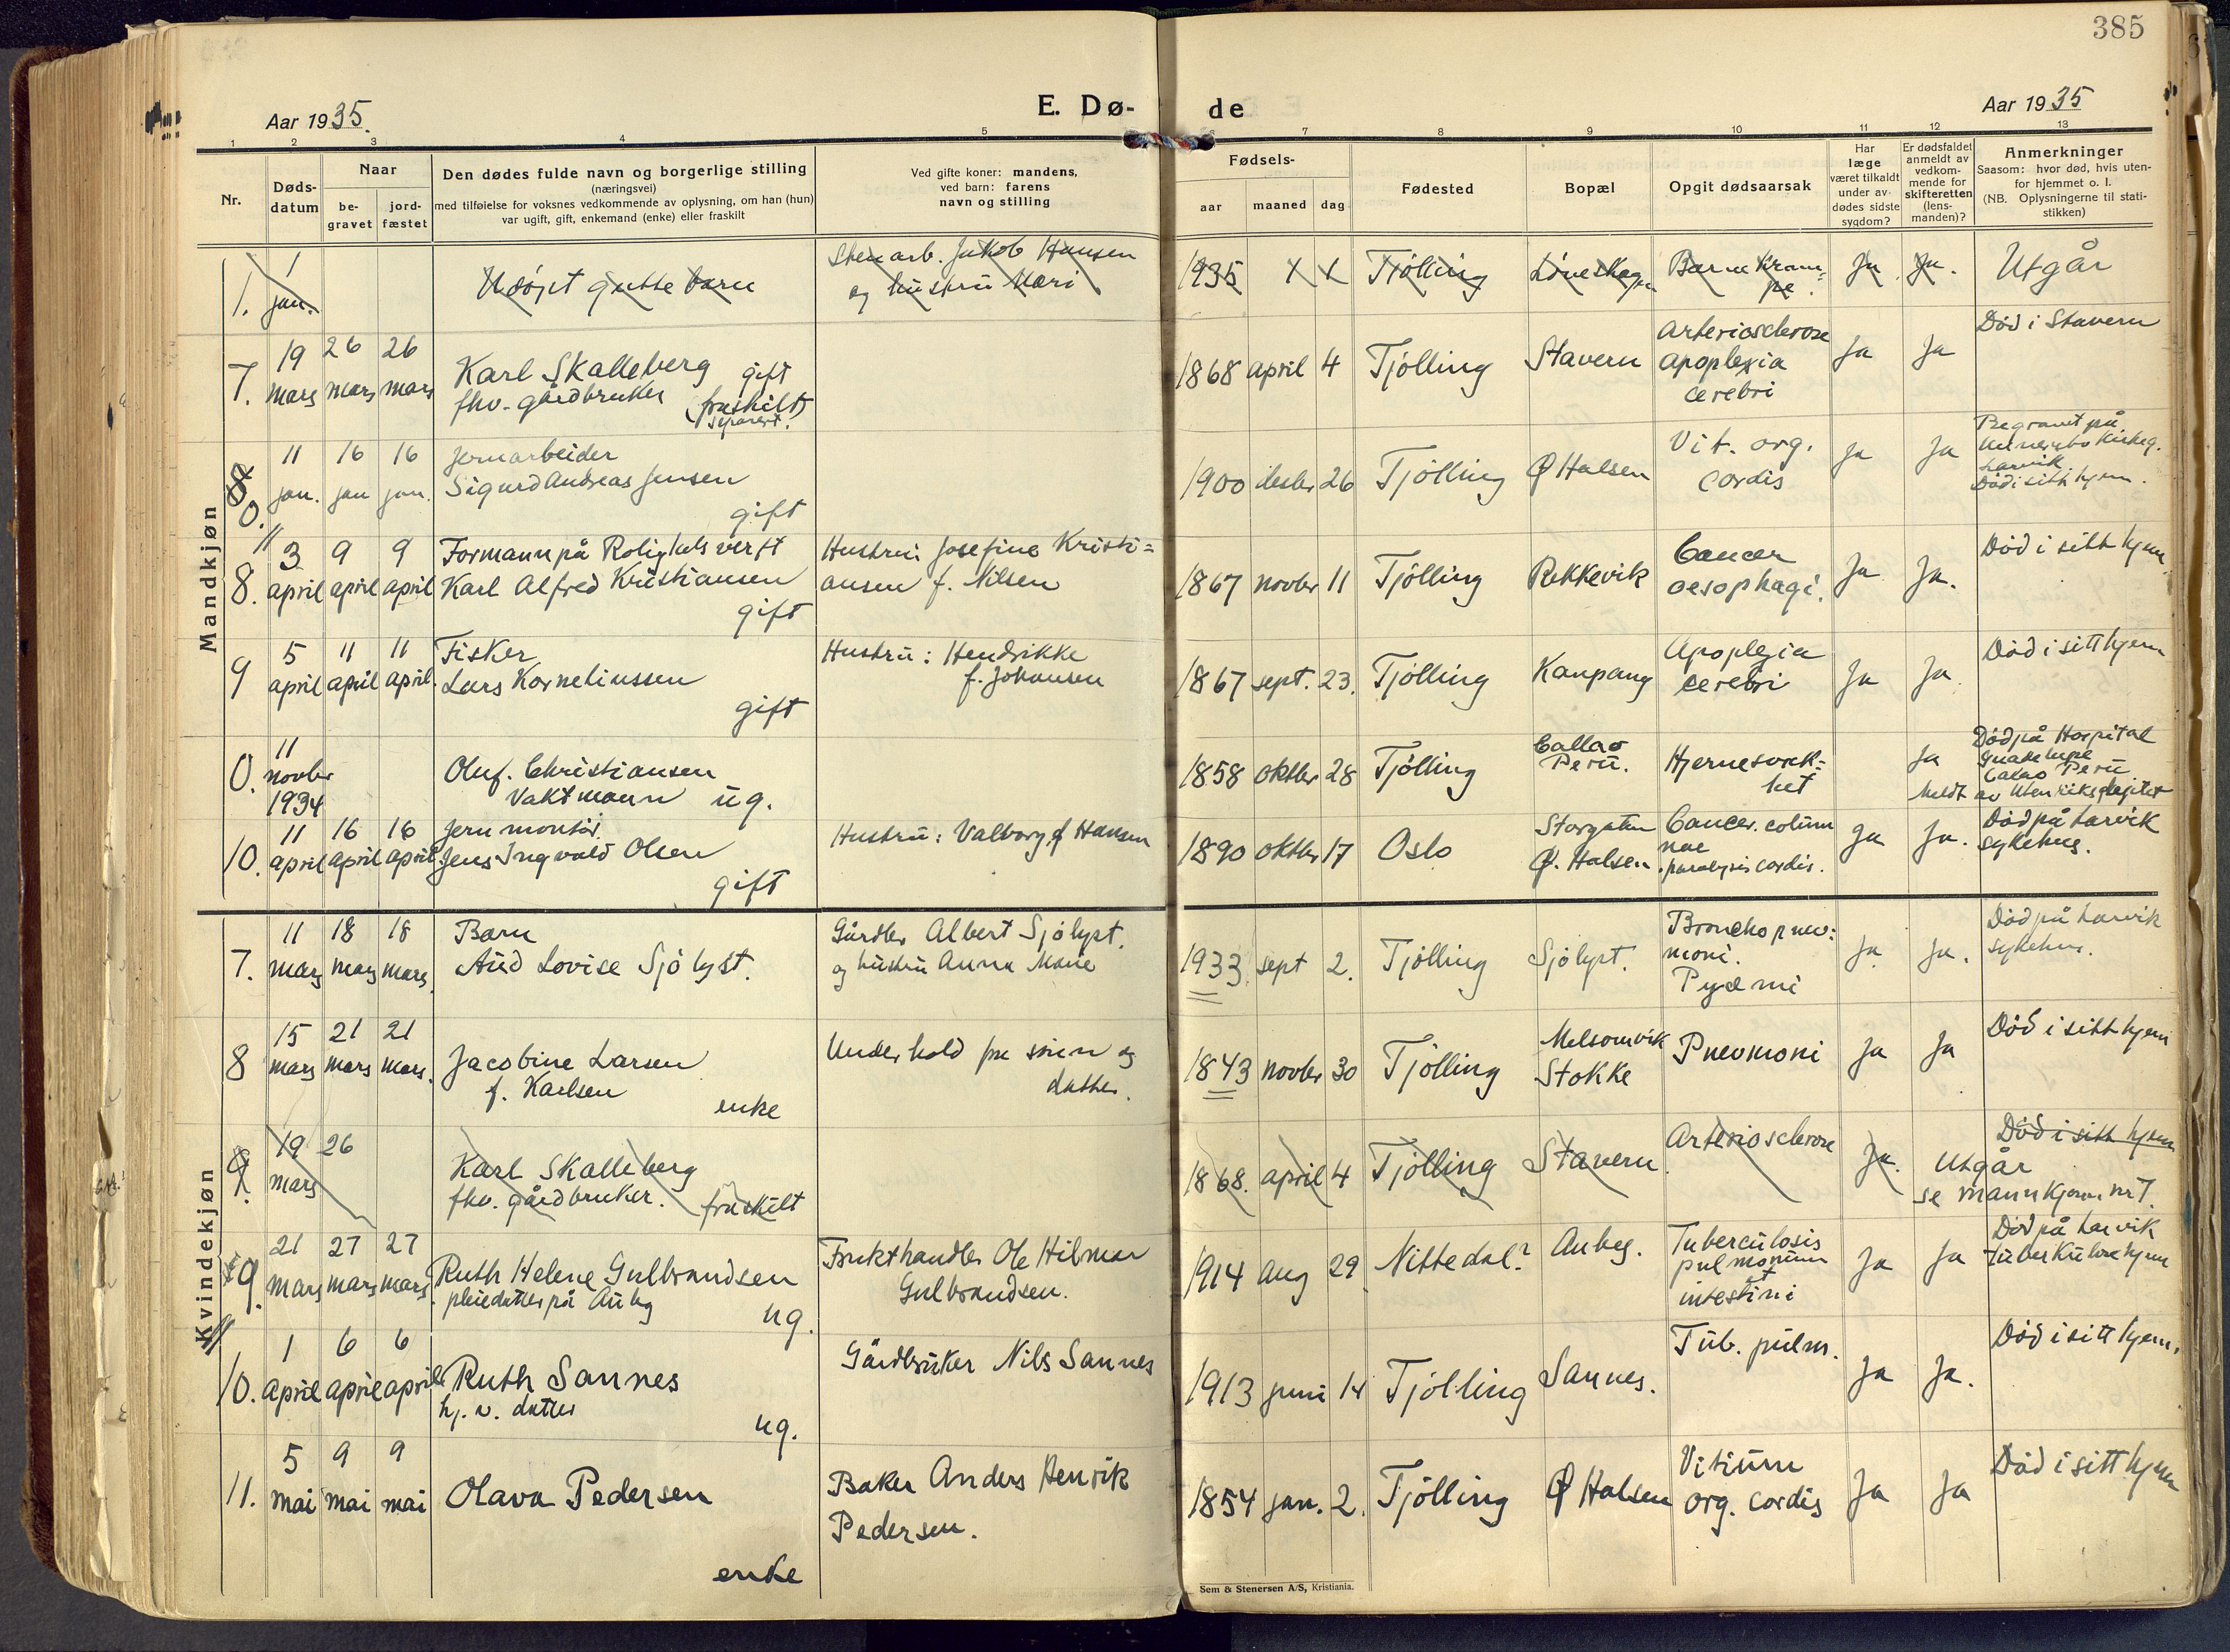 385
Aar 1935.
E. Dø-
de
Aar 1935
1 2 3 4 5 6 7 8 9 10 11 12 13
Nr.
Døds-
datum
Naar
be-
gravet
jord-
fæstet
Den dødes fulde navn og borgerlige stilling
(næringsvei)
med tilføielse for voksnes vedkommende av oplysning, om han (hun)
var ugift, gift, enkemand (enke) eller fraskilt
Ved gifte koner: mandens,
ved barn: farens
navn og stilling
Fødsels-
aar maaned dag
Fødested
Bopæl
Opgit dødsaarsak
Har
læge
været tilkaldt
under av-
dødes sidste
sygdom?
Er dødsfaldet
anmeldt av
vedkom-
mende for
skifteretten
(lens-
manden)?
Anmerkninger
Saasom: hvor død, hvis uten-
for hjemmet o. l.
(NB. Oplysningerne til stati-
stikken)
Mandkjøn
1. 1 jan.
Udöpt guttebarn
Stenarb. Jakob Hansen
og hustru Mari
1935 1 1 Tjölling Löveskogen Barnekram-
pe. Ja. Ja. Utgår
7. 19 mars 26 mars 26 mars
Karl Skalleberg gift
fhv. gårdbruker (fraskilt)
separert.
1868 april 4 Tjölling Stavern
Arteriosclerose
apoplexia
cerebri
Ja Ja
Död i Stavern
8 0. 11 jan. 16 jan 16 jan.
Jernarbeider
Sigurd Andreas Jensen
gift
1900 desbr 26 Tjölling Ø Halsen
Vit. org.
cordis
Ja Ja
Begravet på
kirkeg.
Larvik
Död i sitt hjem.
8. 3 april 9 april 9 april
Formann på Rolighets verft
Karl Alfred Kristiansen
gift
Hustru: Josefine Kristi=
ansen f. Nilsen
1867 novbr 11 Tjölling Rekkevik
Cancer
oesophagi.
Ja Ja.
Död i sitt hjem
9 5 april 11 april 11 april.
Fisker
Lars Korneliussen
gift
Hustru: Hendrikke
f. Johansen
1867 sept. 23. Tjölling Kaupang
Apoplexia
cerebri
Ja Ja.
Död i sitt hjem
0. 11 novbr 1934
Oluf. Christiansen
Vaktmann ug.
1858 oktbr 28 Tjölling
Callao
Peru.
Hjernesvek=
ket
Ja
Död på Hospital
Guadelupe
Callao Peru
Meldt av Utenriksdepitet
10. 11 april 16 april 16 april
Jern montör.
Jens Ingvald Olsen
gift
Hustru: Valborg f Hansen
1890 oktbr 17 Oslo
Storgaten
Ø. Halsen.
Cancer. colum
nae
paralysis cordis.
Ja Ja.
Död på Larvik
sykehus.
Kvindekjøn
7. 11 mars 18 mars 18 mars.
Barn
Aud Lovise Sjölyst.
Gårdbr Albert Sjölyst.
og hustru Anna Marie
1933. sept 2. Tjölling Sjölyst.
Bronchopneu:
moni.
Pyæmi
Ja Ja.
Död på Larvik
sykehus.
8 15 mars 21 mars 21 mars.
Jacobine Larsen
f. Karlsen
enke
Underhold fra sönn og
datter.
1843 novbr 30 Tjölling
Melsomvik
Stokke
Pneumoni
Ja Ja
Död i sitt hjem
9. 19 mars 26
Karl Skalleberg
fhv. gårdbruker. fraskilt
1868. april 4 Tjölling Stavern.
Arteriosclerose
Ja.
Död i sitt hjem
Utgår
se mannkjønn nr 7.
9. 21 mars 27 mars 27 mars
Ruth Helene Gulbrandsen
pleiedatter på Auby
ug.
Frukthandler Ole Hilmar
Gulbrandsen.
1914 aug 29 Nittedal? Auby.
Tuberculosis
pulmonum
et
intestini
Ja Ja
Död på Larvik
tuberkulosehjem
10. 1 april 6 april 6 april
Ruth Sannes
hj. v. datter
ug.
Gårdbruker Nils Sannes
1913 juni 14 Tjölling Sannes.
Tub. pulm.
Ja Ja.
Död i sitt hjem.
11. 5 mai 9 mai 9 mai
Olava Pedersen
enke
Baker Anders Henrik
Pedersen.
1854 jan. 2. Tjölling Ø Halsen
Vitium
org. cordis
Ja Ja
Död i sitt hjem
Sem & Stenersen A/S, Kristiania.